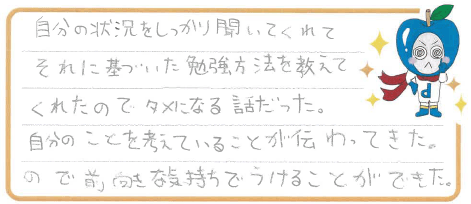 自分の状況をしっかり聞いてくれて
それに基づいた勉強方法を教えて
くれたのでタメになる話だった。
自分のことを考えていることが伝わってきた。
ので前向きな気持ちでうけることができた。
d